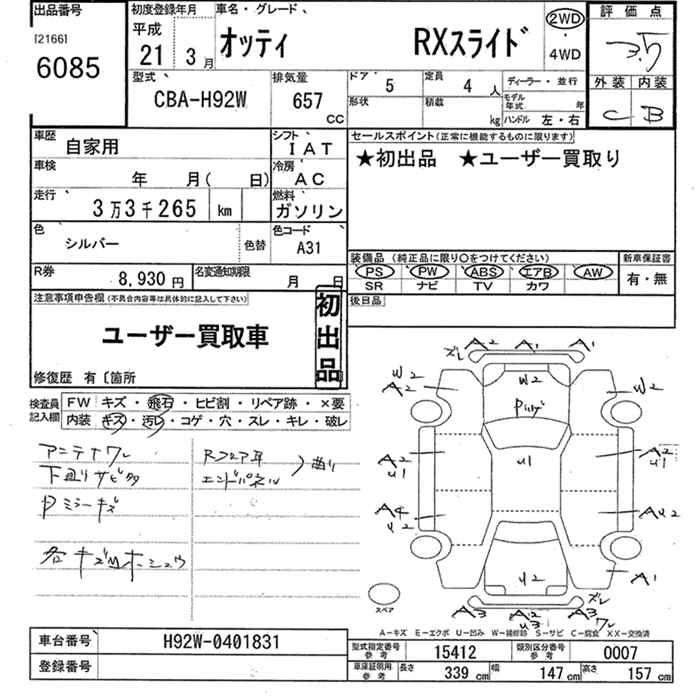 出品番号
[2166]
6085
初度登録年月
平成
21年 3月
車名・グレード
オッティ RXスライド
2WD
・
4WD
評価点
3.5
外装 内装
C B
型式
CBA-H92W
排気量
657 CC
ドア 5
形状
定員 4 人
積載 kg
ディーラー・並行
モデル年式 年
ハンドル 左・右
車歴 自家用
シフト IAT
車検 年 月( 日)
冷房 AC
走行 3万3千265 km
燃料 ガソリン
色 シルバー 色替
色コード A31
R券 8,930円
名変通知期限 月 日
セールスポイント(正常に機能するものに限ります)
★初出品 ★ユーザー買取り
装備品(純正品に限り○をつけてください)
PS PW ABS エアB AW
SR ナビ TV カワ
新車保証書
有・無
後日品
注意事項申告欄(不具合内容等は具体的に記入して下さい)
ユーザー買取車
初出品
修復歴 有〔箇所
検査員記入欄
FW キズ・飛石・ヒビ割・リペア跡・×要
内装 キズ・汚レ・コゲ・穴・スレ・キレ・破レ
アンテナワレ
下廻りサビ
Pミラーキズ
各キズ凹ホシュウ
Rフロア耳
エンドパネル
曲り
ズレ A2 A1 A1
W2 A2
W2
W2
U1
A2 U1
A2 U1
A4 U2
A U2
U2
A1
A3 A2 U3 A3 ズレ ワレ
スペア
A-キズ E-エクボ U-凹み W-補修跡 S-サビ C-腐食 XX-交換済
車台番号 H92W-0401831
登録番号
型式指定番号 参考 15412
類別区分番号 参考 0007
車庫証明用 参考 長さ 339 cm 幅 147 cm 高さ 157 cm